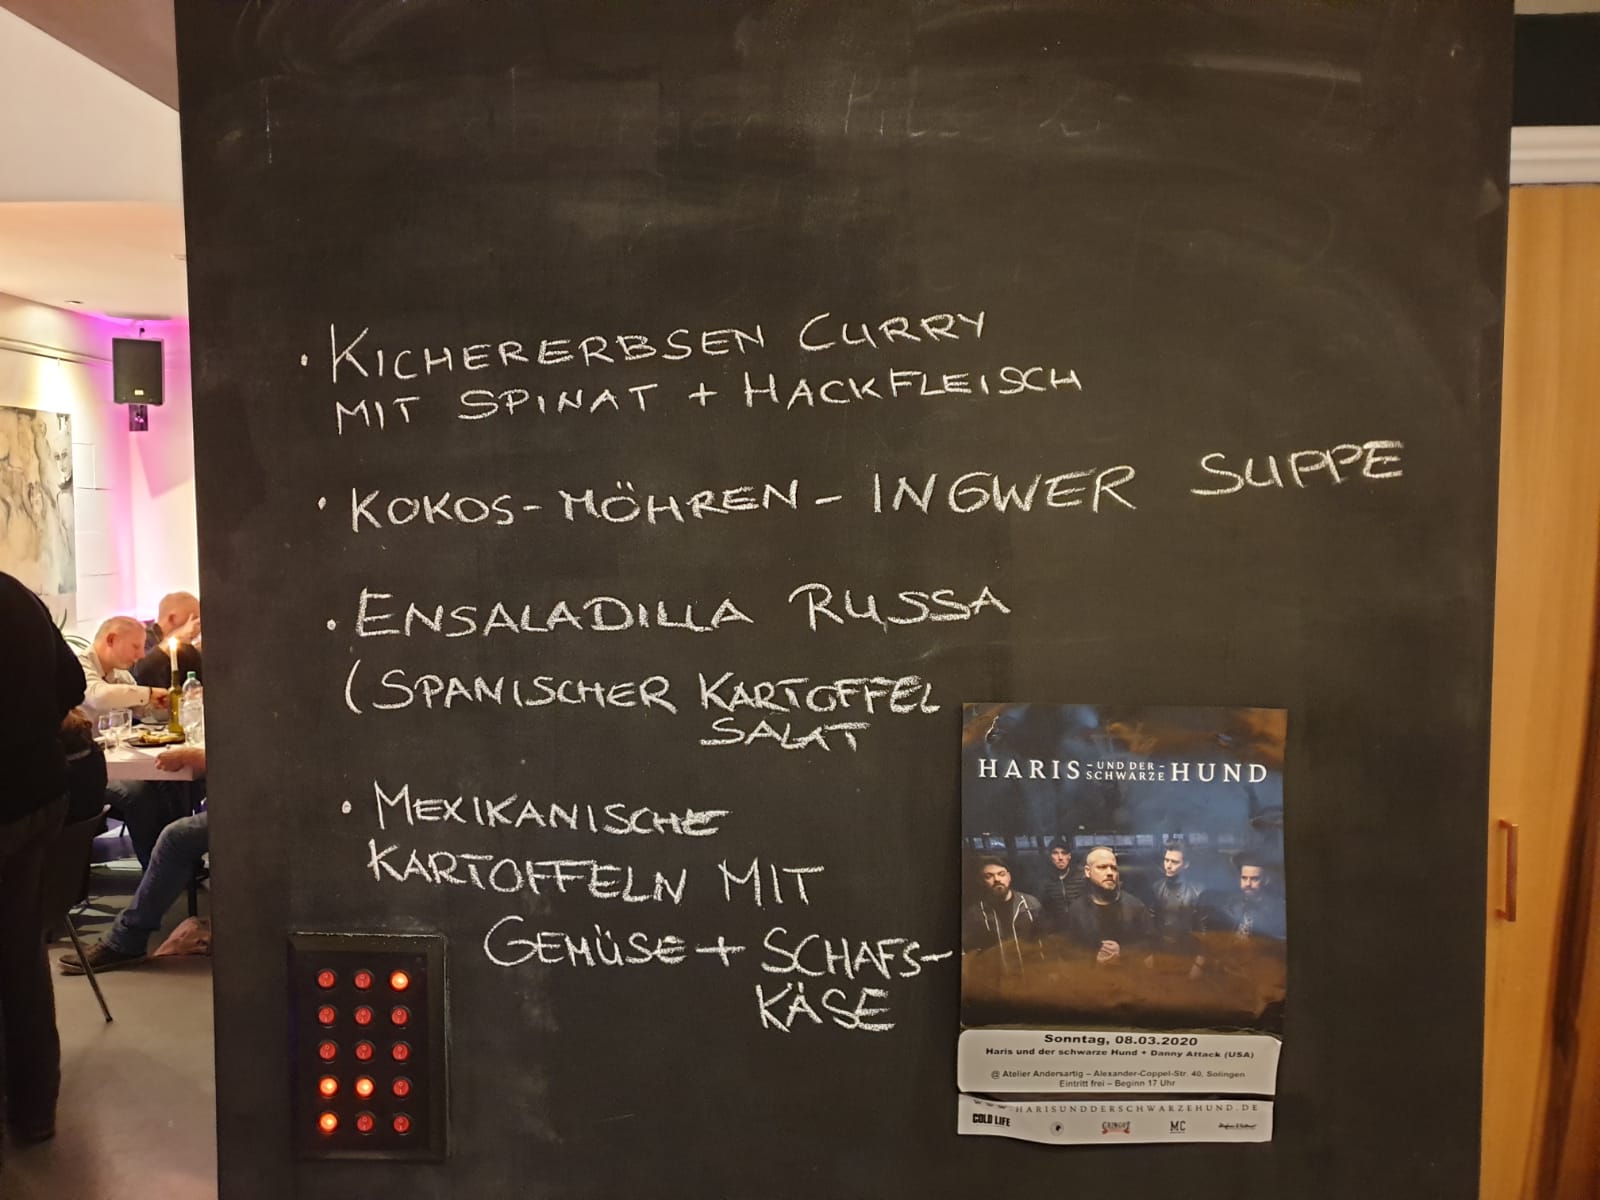 • KICHERERBSEN CURRY
MIT SPINAT + HACKFLEISCH
• KOKOS-MÖHREN-INGWER SUPPE
• ENSALADILLA RUSSA
(SPANISCHER KARTOFFEL
SALAT
• MEXIKANISCHE
KARTOFFELN MIT
GEMÜSE + SCHAFS-
KÄSE
HARIS - UND DER SCHWARZE - HUND
Sonntag, 08.03.2020
Haris und der schwarze Hund + Danny Attack (USA)
@ Atelier Andersartig – Alexander-Coppel-Str. 40, Solingen
Eintritt frei – Beginn 17 Uhr
WWW.HARISUNDDERSCHWARZEHUND.DE
COLD LIFE
MC